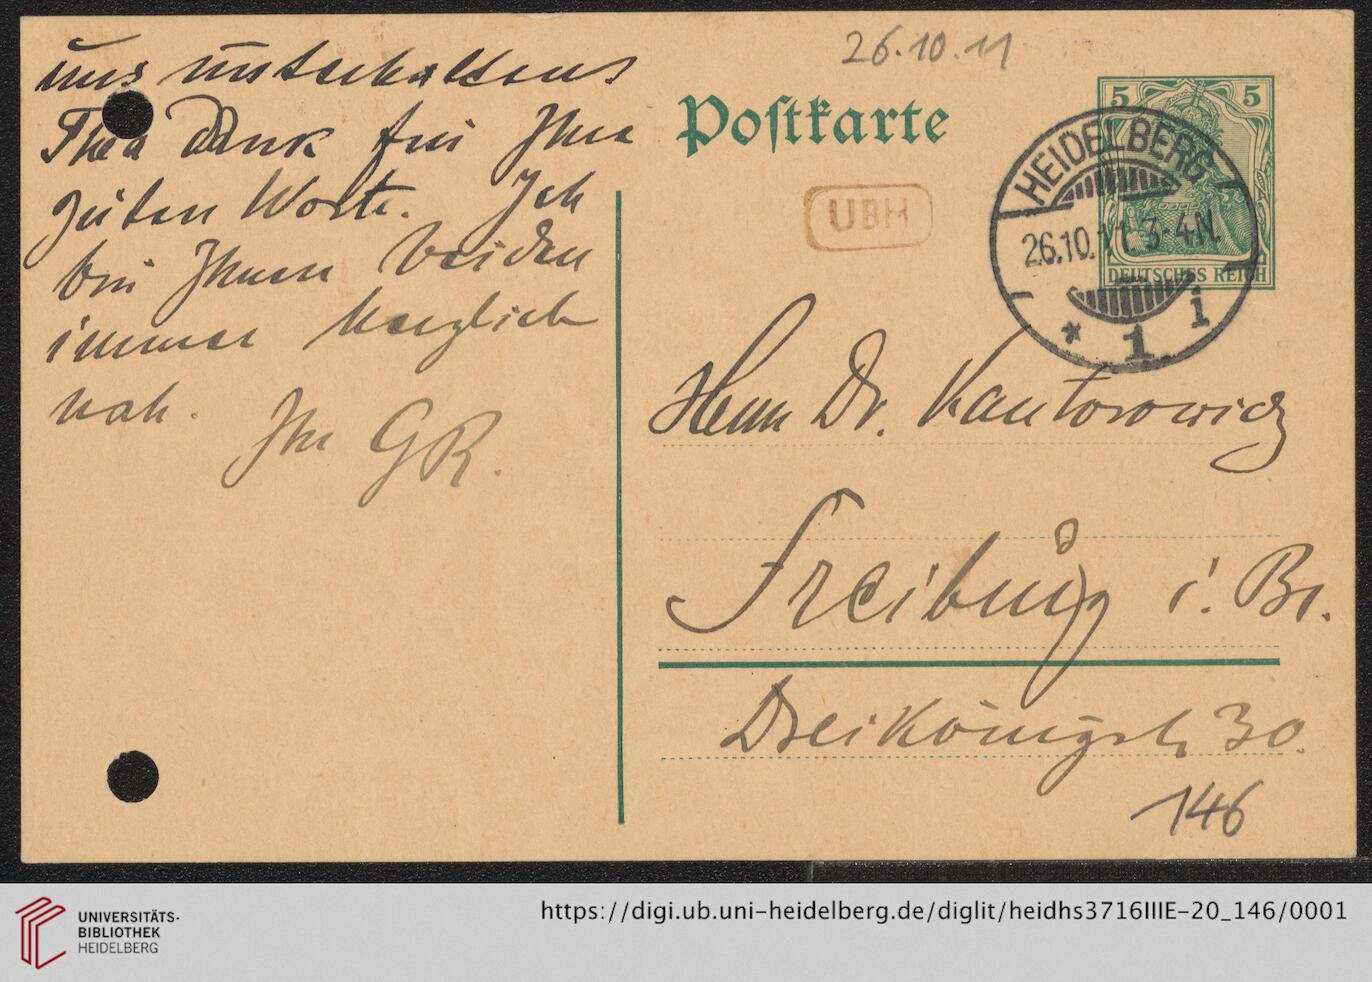 uns
Thea Dank für Ihre
guten Worte. Ich
bin Ihnen beiden
immer herzlich
nah.
Ihr GR.
26.10.11
Postkarte
UBH
5 5
DEUTSCHES REICH
HEIDELBERG
26.10.11.3-4N.
* 1 i
Herrn Dr. Kantorowicz
Freiburg i. Br.
Dreikönigstr. 30.
146
UNIVERSITÄTS-
BIBLIOTHEK
HEIDELBERG
https://digi.ub.uni-heidelberg.de/diglit/heidhs3716IIIE-20_146/0001